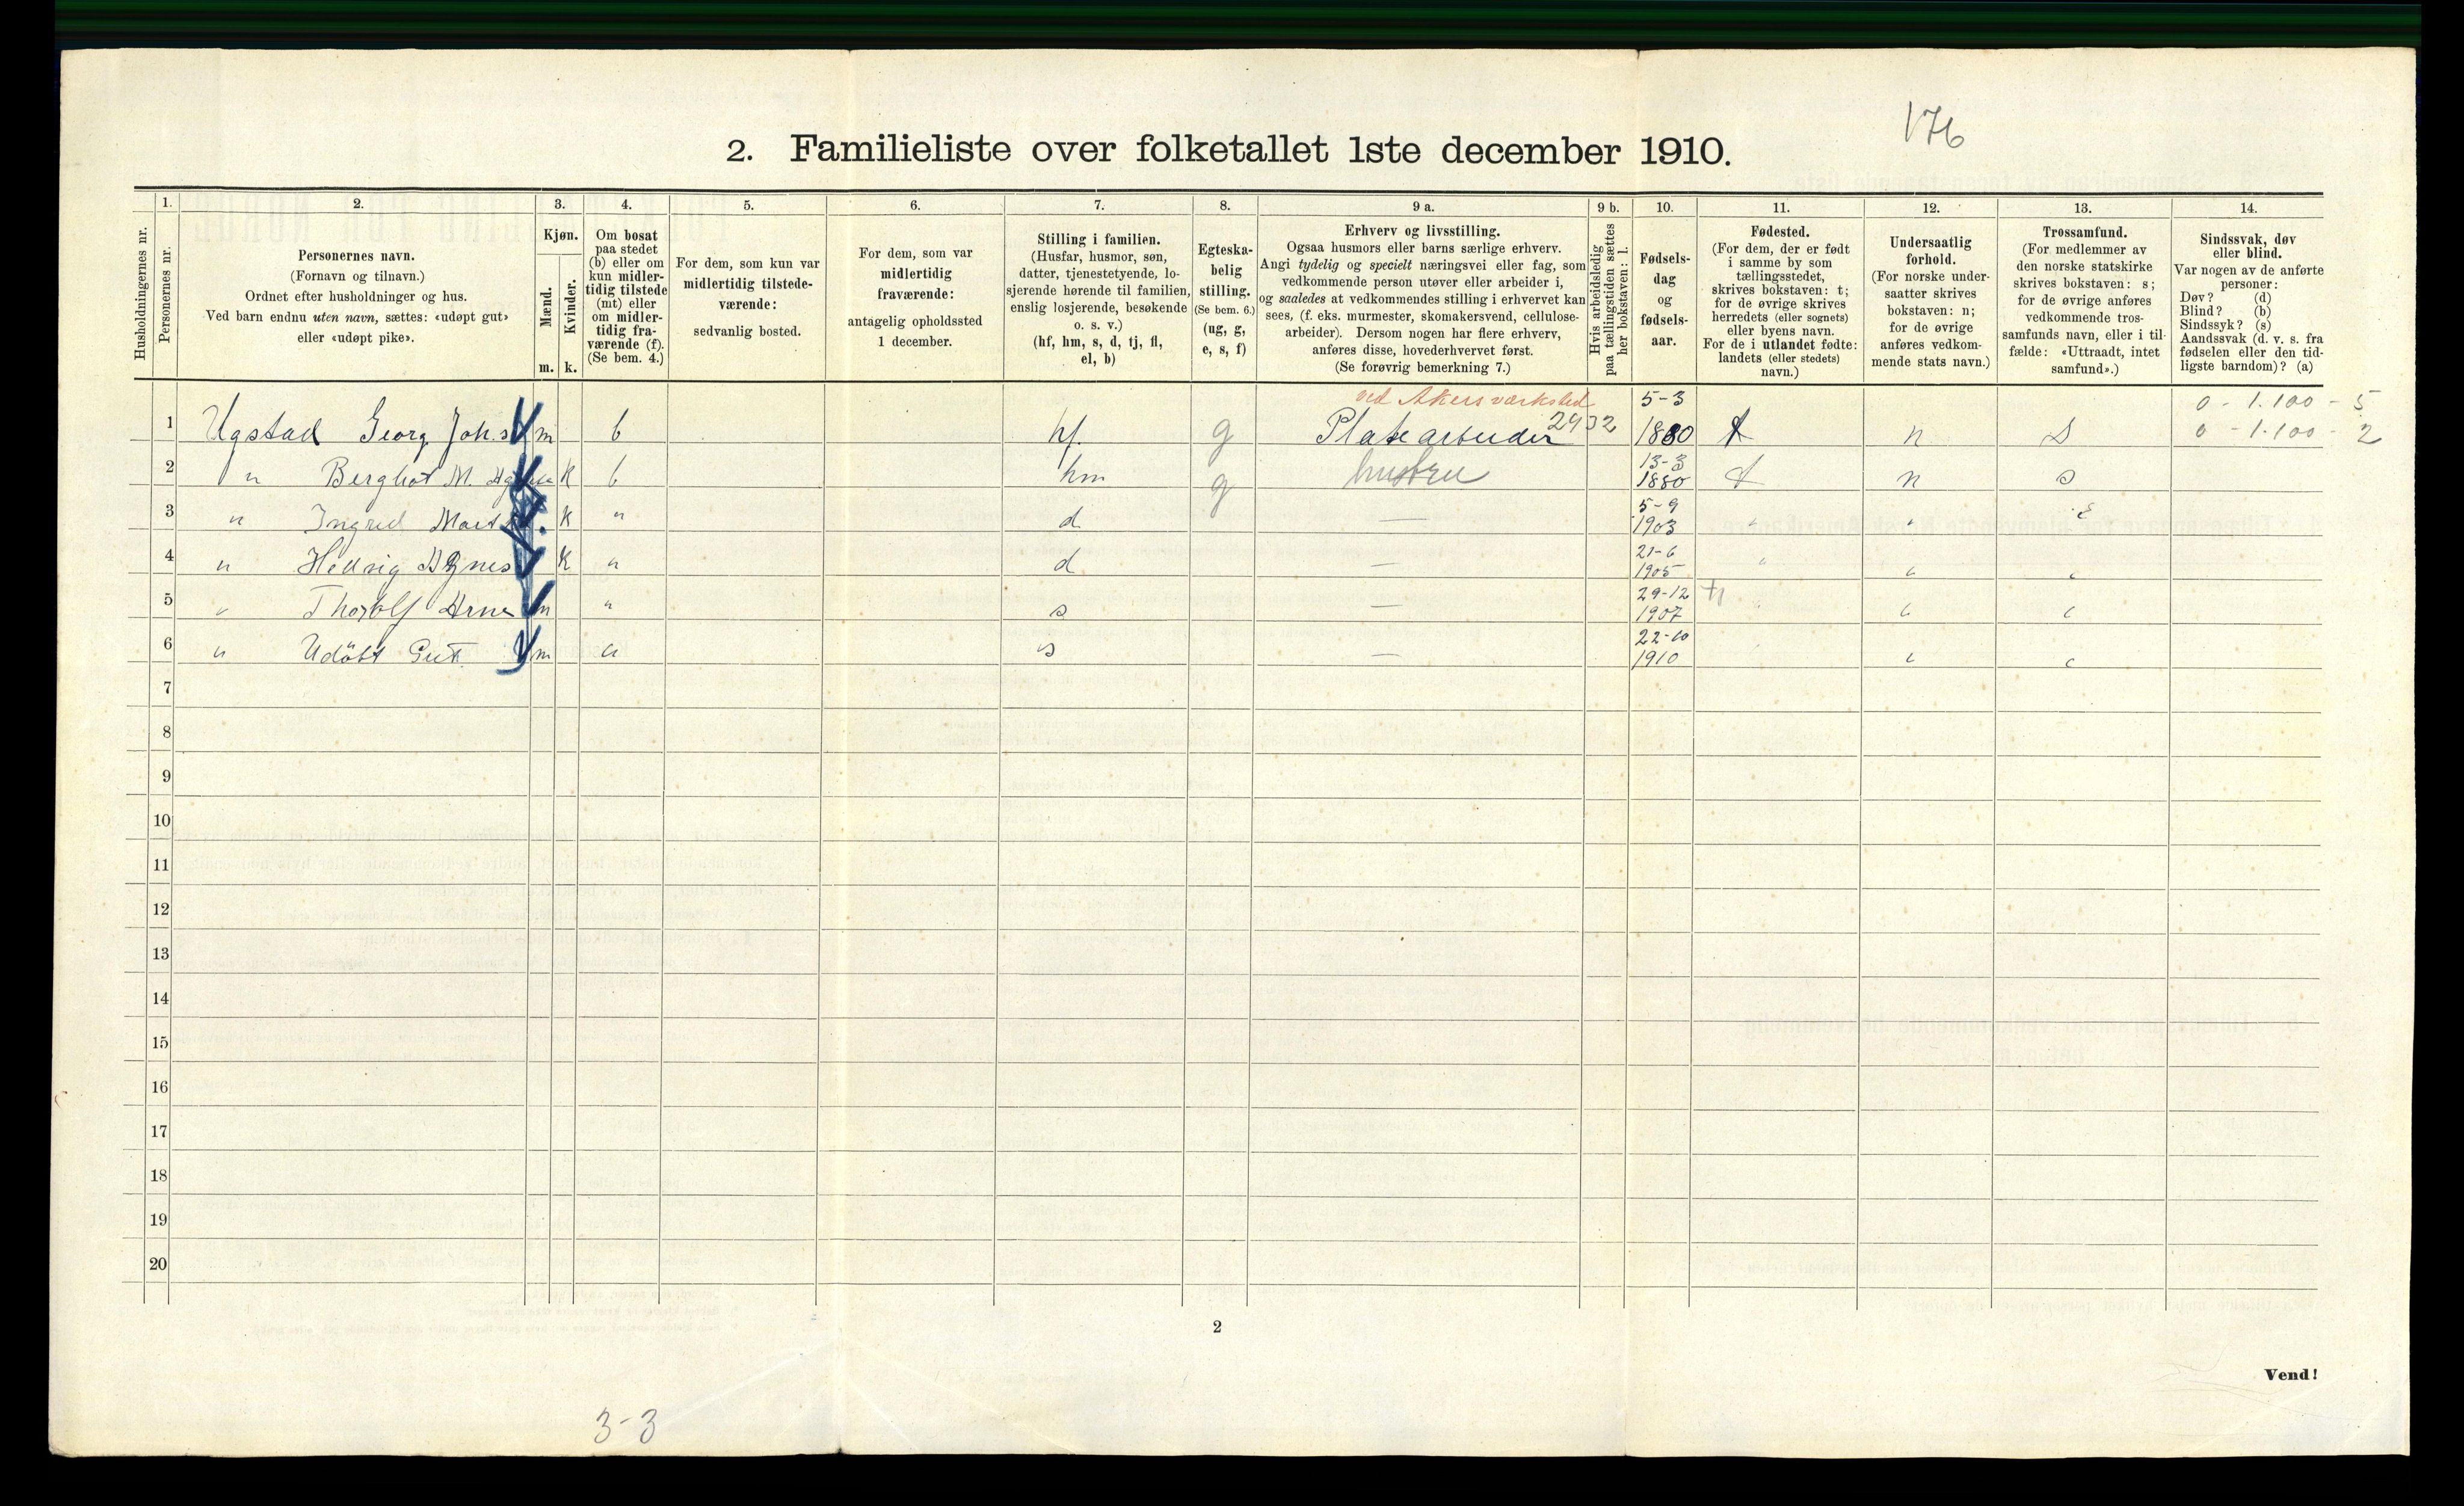 176
2. Familieliste over folketallet 1ste december 1910.
Husholdningernes nr.
1.
Personernes nr.
2.
Personernes navn.
(Fornavn og tilnavn.)
Ordnet efter husholdninger og hus.
Ved barn endnu uten navn, sættes: «udøpt gut»
eller «udøpt pike».
3.
Kjøn.
Mænd.
m.
Kvinder.
k.
4.
Om bosat
paa stedet
(b) eller om
kun midler-
tidig tilstede
(mt) eller
om midler-
tidig fra-
værende (f).
(Se bem. 4.)
5.
For dem, som kun var
midlertidig tilstede-
værende:
sedvanlig bosted.
6.
For dem, som var
midlertidig
fraværende:
antagelig opholdssted
1 december.
7.
Stilling i familien.
(Husfar, husmor, søn,
datter, tjenestetyende, lo-
sjerende hørende til familien,
enslig losjerende, besøkende
o. s. v.)
(hf, hm, s, d, tj, fl,
el, b)
8.
Egteska-
belig
stilling.
(Se bem. 6.)
(ug, g,
e, s, f)
9 a.
Erhverv og livsstilling.
Ogsaa husmors eller barns særlige erhverv.
Angi tydelig og specielt næringsvei eller fag, som
vedkommende person utøver eller arbeider i,
og saaledes at vedkommendes stilling i erhvervet kan
sees, (f. eks. murmester, skomakersvend, cellulose-
arbeider). Dersom nogen har flere erhverv,
anføres disse, hovederhvervet først.
(Se forøvrig bemerkning 7.)
9 b.
Hvis arbeidsledig
paa tællingstiden sættes
her bokstaven: l.
10.
Fødsels-
dag
og
fødsels-
aar.
11.
Fødested.
(For dem, der er født
i samme by som
tællingsstedet,
skrives bokstaven: t;
for de øvrige skrives
herredets (eller sognets)
eller byens navn.
For de i utlandet fødte:
landets (eller stedets)
navn.)
12.
Undersaatlig
forhold.
(For norske under-
saatter skrives
bokstaven: n;
for de øvrige
anføres vedkom-
mende stats navn.)
13.
Trossamfund.
(For medlemmer av
den norske statskirke
skrives bokstaven: s;
for de øvrige anføres
vedkommende tros-
samfunds navn, eller i til-
fælde: «Uttraadt, intet
samfund».)
14.
Sindssvak, døv
eller blind.
Var nogen av de anførte
personer:
Døv? (d)
Blind? (b)
Sindssyk? (s)
Aandssvak (d. v. s. fra
fødselen eller den tid-
ligste barndom)? (a)
ved Akers værksted 5-3 0 - 1.100 - 5
1 Ugstad Georg Joh. m b hf g Platearbeider 2932 1880 t n s 0 - 1.100 - 2
2 " Berghot M. k b hm g hustru 13-3 1880 t n s
3 " Ingrid k " d — 5-9 1903 " "
4 " Hedvig Agnes k " d — 21-6 1905 " " "
5 " Thorolf Arne m " s — 29-12 1907 " " "
6 " Udöbt Gut m " s — 22-10 1910 " "
7
8
9
10
11
12
13
14
15
16
17
18
19
20
2
Vend!
3-3